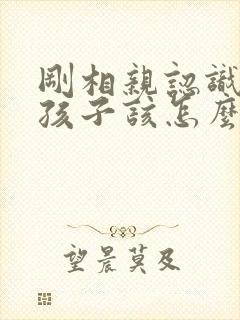 剛相親認識
孩子該怎麼
望晨莫及